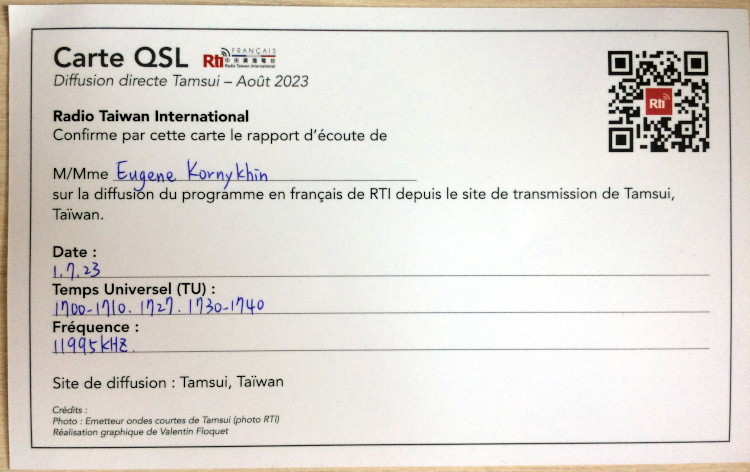 Carte QSL Rti FRANÇAIS
中央廣播電台
Radio Taiwan International
Diffusion directe Tamsui – Août 2023
Rti
Radio Taiwan International
Confirme par cette carte le rapport d'écoute de
M/Mme Eugene Kornykhin
sur la diffusion du programme en français de RTI depuis le site de transmission de Tamsui,
Taïwan.
Date :
1.7.23
Temps Universel (TU) :
1700-1710. 1727. 1730-1740
Fréquence :
11995KHZ.
Site de diffusion : Tamsui, Taïwan
Crédits :
Photo : Emetteur ondes courtes de Tamsui (photo RTI)
Réalisation graphique de Valentin Floquet